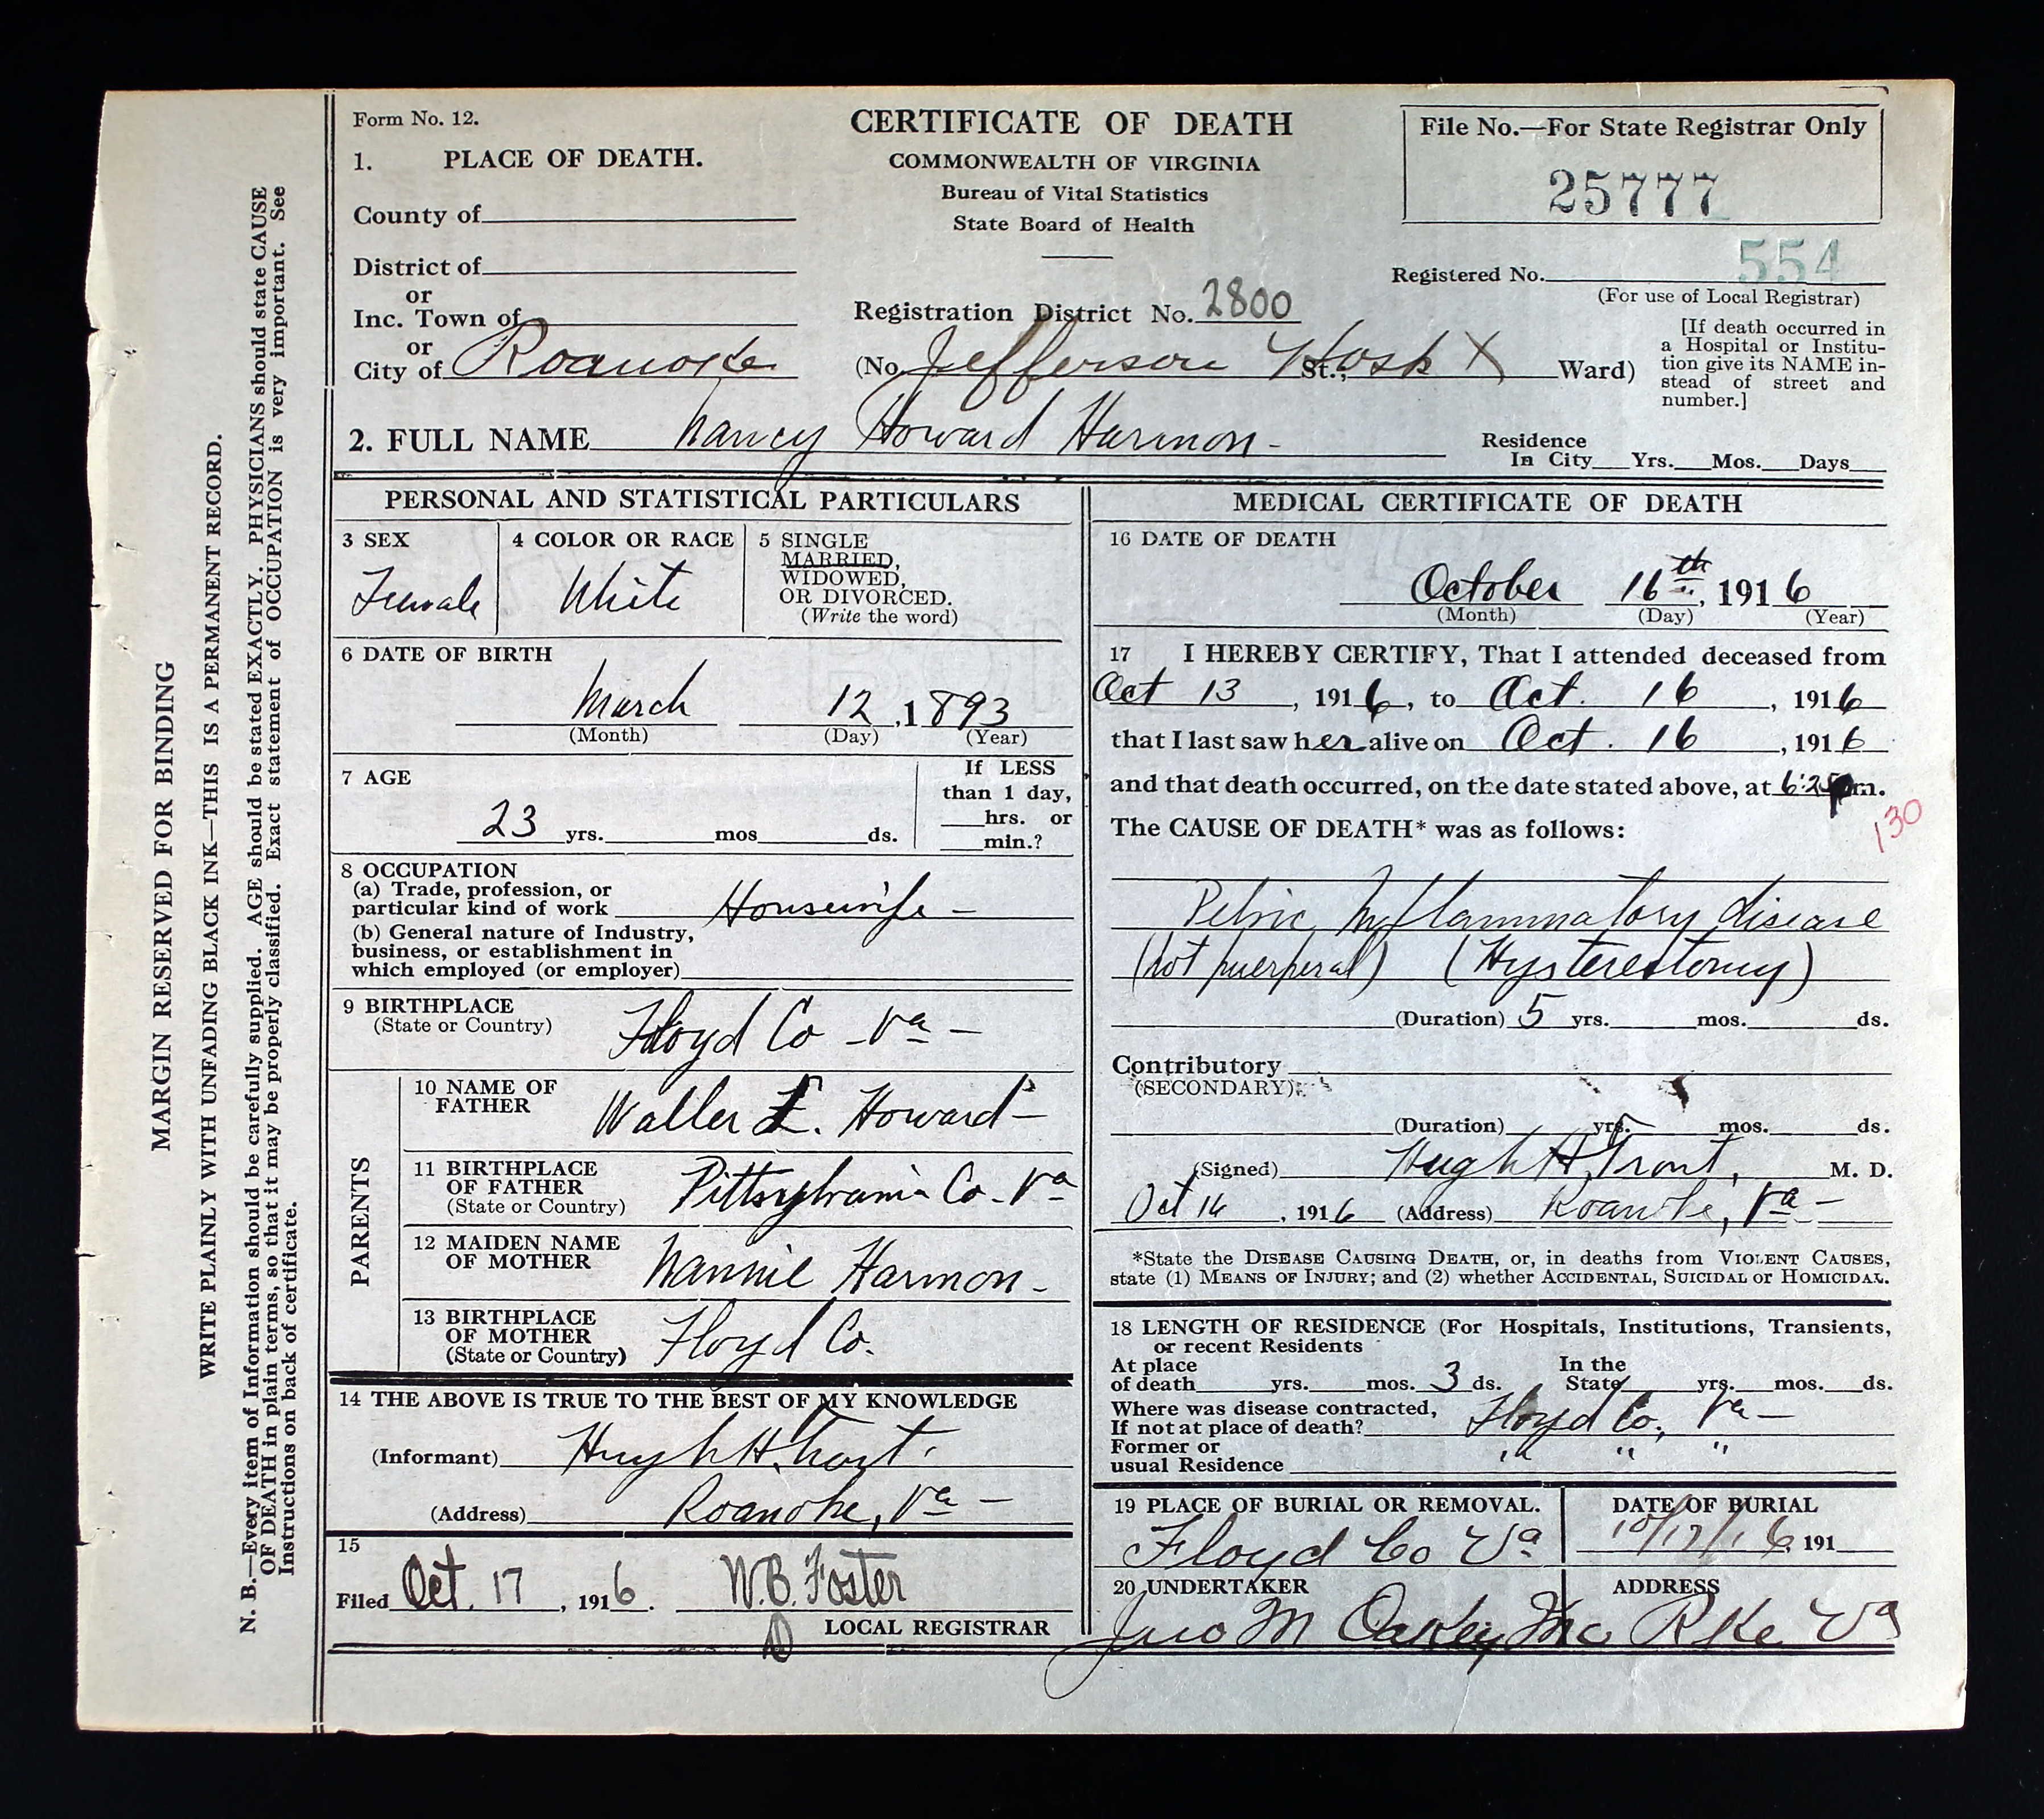 Form No. 12.
1. PLACE OF DEATH.
County of
District of
or
Inc. Town of
or
City of Roanoke
CERTIFICATE OF DEATH
COMMONWEALTH OF VIRGINIA
Bureau of Vital Statistics
State Board of Health
Registration District No. 2800
(No. Jefferson Hosp St., X Ward)
File No.—For State Registrar Only
25777
Registered No. 554
(For use of Local Registrar)
[If death occurred in
a Hospital or Institu-
tion give its NAME in-
stead of street and
number.]
2. FULL NAME Nancy Howard Harmon -
Residence
In City Yrs. Mos. Days
PERSONAL AND STATISTICAL PARTICULARS
3 SEX
Female
4 COLOR OR RACE
White
5 SINGLE
MARRIED,
WIDOWED,
OR DIVORCED.
(Write the word)
6 DATE OF BIRTH
March 12, 1893
(Month) (Day) (Year)
7 AGE
23 yrs. mos ds.
If LESS
than 1 day,
hrs. or
min.?
8 OCCUPATION
(a) Trade, profession, or
particular kind of work Housewife -
(b) General nature of Industry,
business, or establishment in
which employed (or employer)
9 BIRTHPLACE
(State or Country) Floyd Co - Va -
PARENTS
10 NAME OF
FATHER Waller Howard -
11 BIRTHPLACE
OF FATHER
(State or Country) Pittsylvania Co - Va
12 MAIDEN NAME
OF MOTHER Nannie Harmon -
13 BIRTHPLACE
OF MOTHER
(State or Country) Floyd Co.
14 THE ABOVE IS TRUE TO THE BEST OF MY KNOWLEDGE
(Informant) Hugh H. Trout.
(Address) Roanoke, Va -
15
Filed Oct. 17, 1916. W.B. Foster
LOCAL REGISTRAR
MEDICAL CERTIFICATE OF DEATH
16 DATE OF DEATH
October 16th, 1916
(Month) (Day) (Year)
17 I HEREBY CERTIFY, That I attended deceased from
Oct 13, 1916, to Oct. 16, 1916
that I last saw her alive on Oct. 16, 1916
and that death occurred, on the date stated above, at 6:25 pm.
130
The CAUSE OF DEATH* was as follows:
Pelvic Inflammatory disease
(not puerperal) (Hysterectomy)
(Duration) 5 yrs. mos. ds.
Contributory
(SECONDARY)
(Duration) yrs. mos. ds.
(Signed) Hugh H. Trout, M. D.
Oct 16, 1916 (Address) Roanoke, Va -
*State the DISEASE CAUSING DEATH, or, in deaths from VIOLENT CAUSES,
state (1) MEANS OF INJURY; and (2) whether ACCIDENTAL, SUICIDAL or HOMICIDAL.
18 LENGTH OF RESIDENCE (For Hospitals, Institutions, Transients,
or recent Residents
At place
of death yrs. mos. 3 ds.
In the
State yrs. mos. ds.
Where was disease contracted,
If not at place of death? Floyd Co., Va -
Former or
usual Residence " " "
19 PLACE OF BURIAL OR REMOVAL.
Floyd Co Va
DATE OF BURIAL
10/17/16, 191
20 UNDERTAKER
Jno M Oakey Inc
ADDRESS
Rke Va
MARGIN RESERVED FOR BINDING
WRITE PLAINLY WITH UNFADING BLACK INK—THIS IS A PERMANENT RECORD.
N. B.—Every item of Information should be carefully supplied. AGE should be stated EXACTLY. PHYSICIANS should state CAUSE
OF DEATH in plain terms, so that it may be properly classified. Exact statement of OCCUPATION is very important. See
Instructions on back of certificate.